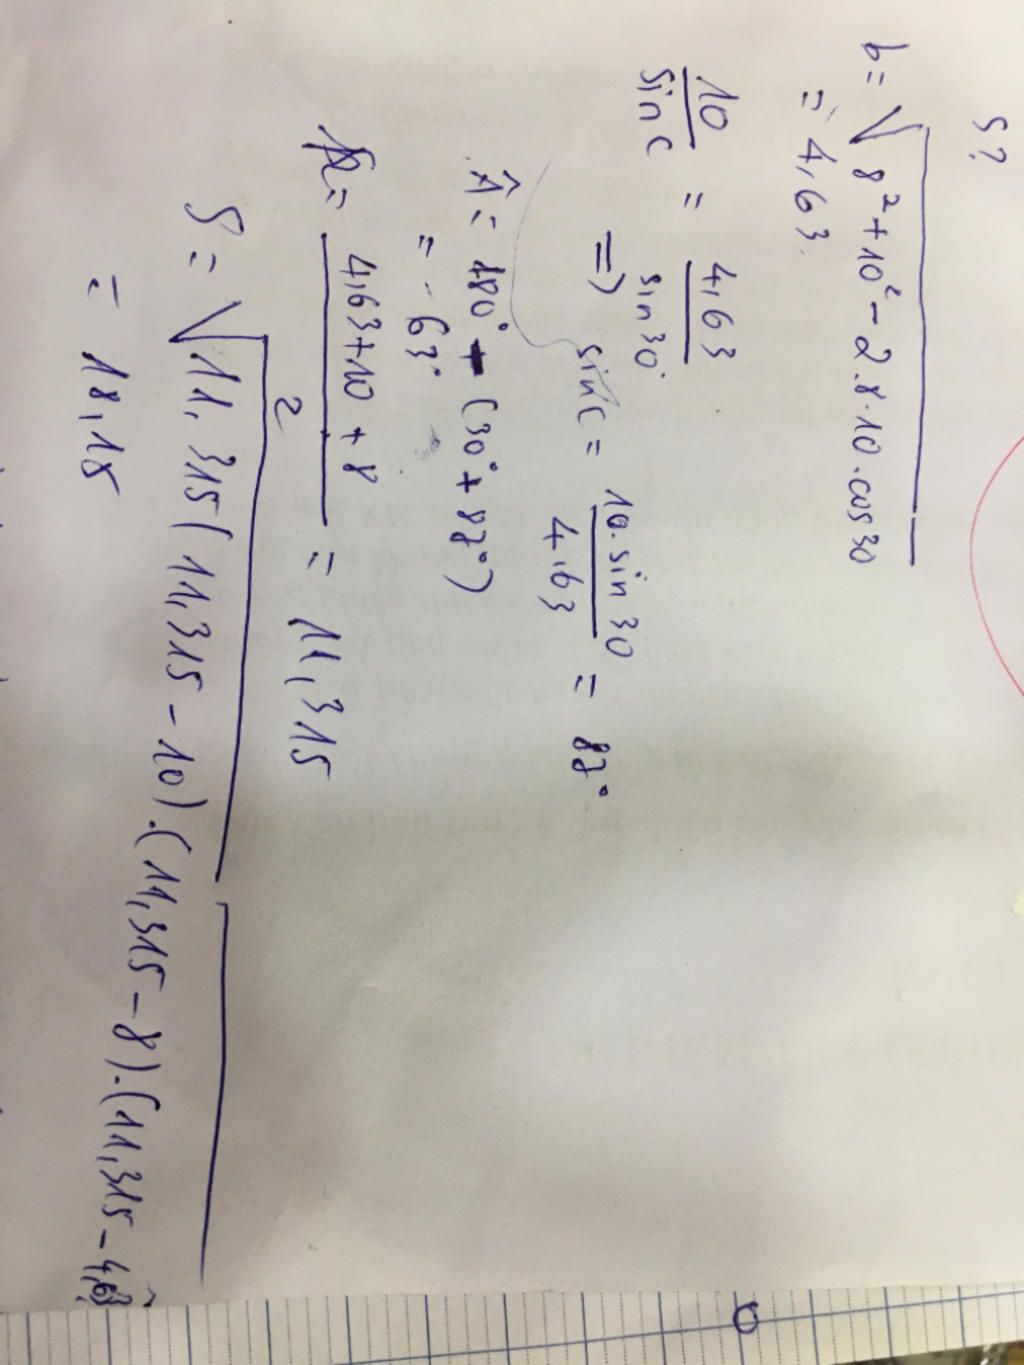 S?
b = √8² + 10² - 2.8.10.cos30
= 4,63.
10/sin C = 4,63/sin 30°
=) sin C = 10.sin 30/4,63 = 87°
Â = 180° - (30° + 87°)
= 63°
p = 4,63+10+8/2 = 11,315
S = √11,315(11,315-10).(11,315-8).(11,315-4,63)
= 18,15